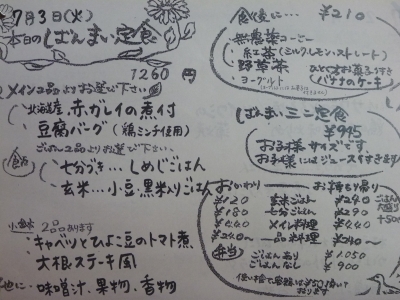 7月3日(火)
本日のしばんまい定食
1260円
メイン2品よりお選び下さい
北海道産 赤ガレイの煮付
豆腐バーグ(鶏ミンチ使用)
ごはん2品よりお選び下さい
七分づき…しめじごはん
玄米…小豆、黒米入りごはん
小鉢 2品あります
キャベツとひよこ豆のトマト煮
大根ステーキ風
他に・味噌汁、果物、香物
食後に… ¥210
無農薬コーヒー
紅茶(ミルク、レモン、ストレート)
野草茶
ヨーグルト
ひとくちお菓子つき
(バナナのケーキ)
しばんまいミニ定食
¥945
お子様サイズです。
お子様にはジュースつきます
おかわり お持ち帰り
¥120 玄米ごはん ¥240
¥180 七分ごはん ¥290
¥440 メイン料理 ¥440
¥240~ 一品料理 ¥240~
ごはん大盛り
+50
弁当 ごはんあり ¥1050
ごはんなし ¥900